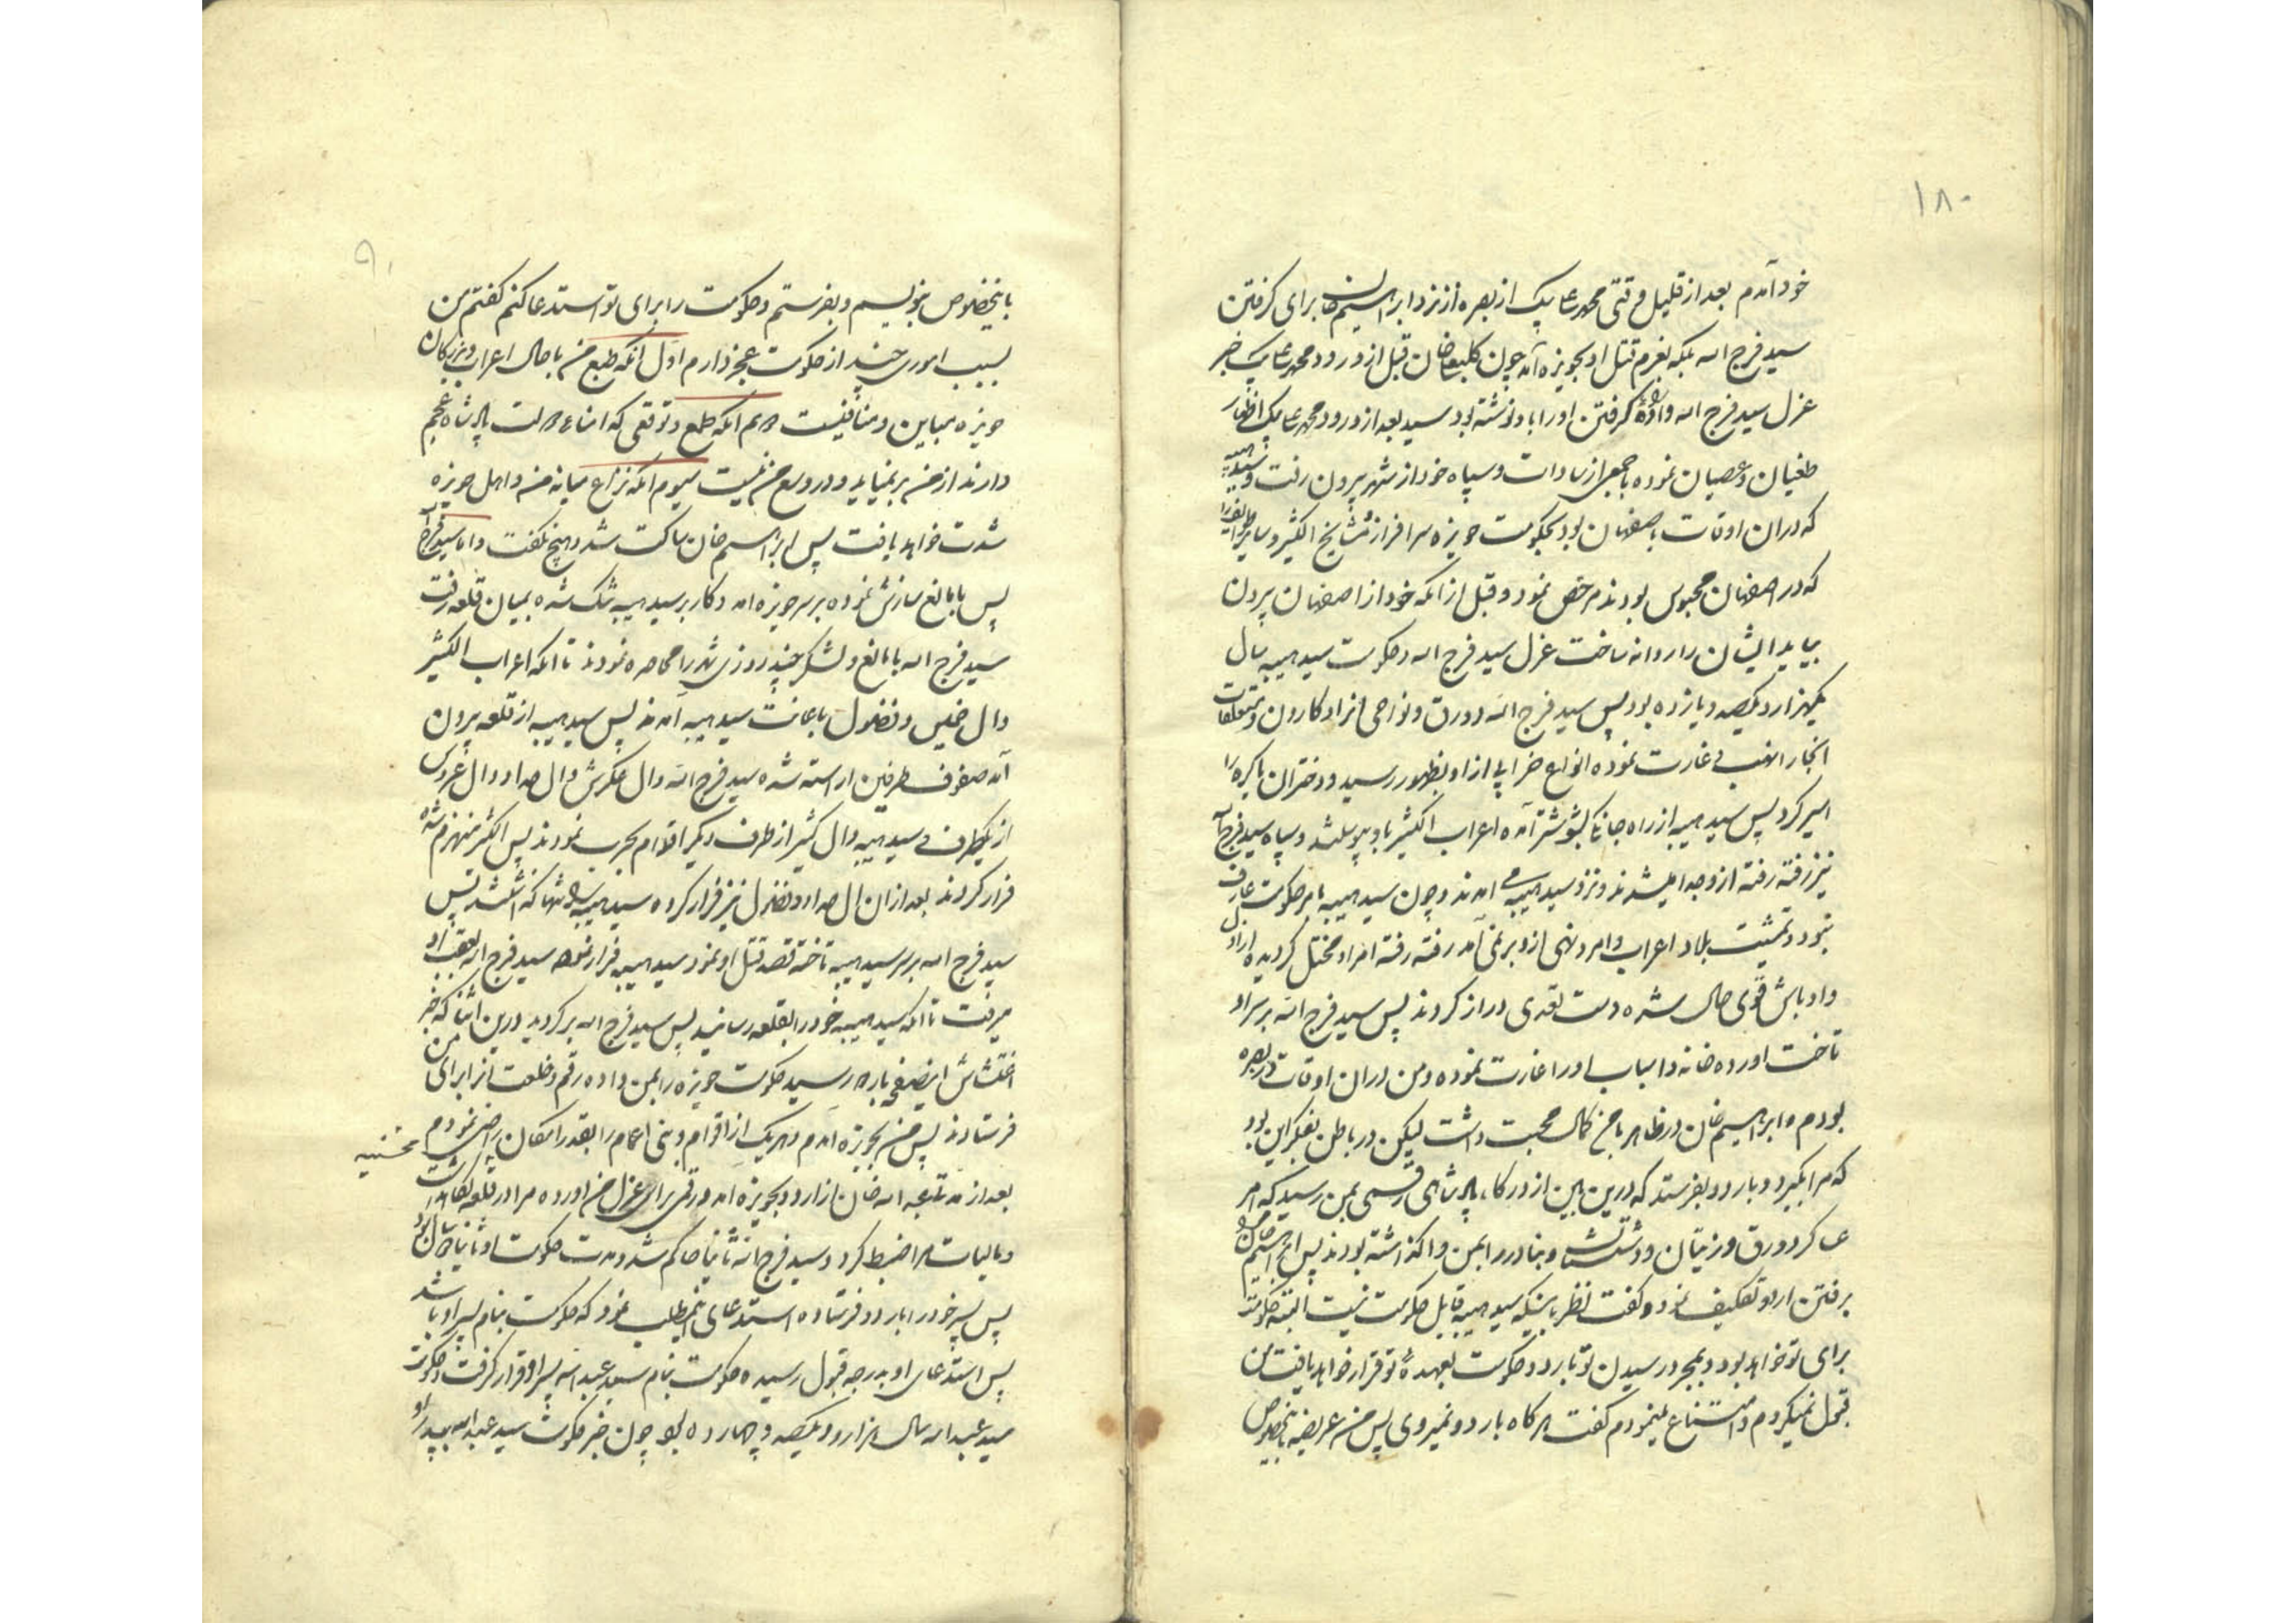 ۱۸۰
خود آمدم بعد از قلیل وقتی محمد علی بیک از بصره از نزد ابراهیم خان برای گرفتن
سید فرج الله بلکه بعزم قتل او بحویزه آمد چون کلبعلی خان قبل از ورود محمد علی بیک خبر
عزل سید فرج الله و اراده گرفتن او را باو نوشته بود سید بعد از ورود محمد علی بیک اظهار
طغیان و عصیان نموده با جمعی از سادات و سپاه خود از شهر بیرون رفت و سید هیبه
که در آن اوقات باصفهان بود بحکومت حویزه سرافراز و مشایخ الکثیر و سایر طوایف را
که در اصفهان محبوس بودند مرخص نمود و قبل از آنکه خود از اصفهان بیرون
بیاید ایشان را روانه ساخت عزل سید فرج الله و حکومت سید هیبه سال
یکهزار و یکصد و یازده بود پس سید فرج الله دورق و نواحی انرا و کارون و متعلقات
انجا را نهب و غارت نموده انواع خرابی از او بظهور رسید و دختران باکره را
اسیر کرد پس سید هیبه از راه جانکی بشوشتر آمده اعراب الکثیر باو پیوستند و سپاه سید فرج الله
نیز رفته رفته از وجدا میشدند و نزد سید هیبه می امدند و چون سید هیبه بامر حکومت عارف
نبود و تمشیت بلاد اعراب و امر و نهی از و بر نمی آمد رفته رفته امر او مختل گردیده اراذل
و اوباش قوی حال شده دست تعدی دراز کردند پس سید فرج الله بر سر او
تاخت اورده خانه و اسباب او را غارت نموده و من در ان اوقات در بصره
بودم و ابراهیم خان در ظاهر با من کمال محبت داشت لیکن در باطن بفکر این بود
که مرا بگیرد و باردو بفرستد که درین بین از درگاه پادشاهی رقمی بمن رسید که امر
عساکر دورق و زیتان و دشتستان و بنادر را بمن واگذاشته بودند پس ابراهیم خان مرا
برفتن اردو تکلیف نمود و گفت نظر باینکه سید هیبه قابل حکومت نیست البته حکومت
برای تو خواهد بود و بمجرد رسیدن تو باردو حکومت بعهدهٔ تو قرار خواهد یافت من
قبول نمیکردم و امتناع مینمودم گفت هرگاه باردو نمیروی پس من عریضه بخصوص
باینخصوص بنویسم و بفرستم و حکومت را برای تو استدعا کنم گفتم من
بسبب اموری چند از حکومت عجز دارم اول انکه طبع من با حال اعراب و بزرگان
حویزه مباین و منافیست دویم انکه طمع و توقعی که امناء دولت پادشاه عجم
دارند از من بر نمیاید و در وسع من نیست سیوم انکه نزاع میانه من و اهل حویزه
شدت خواهد یافت پس ابراهیم خان ساکت شد و هیچ نگفت و اما سید فرج الله
پس با مانع سازش نموده بر سر حویزه امد و کار بر سید هیبه تنک شده بمیان قلعه رفت
سید فرج الله با مانع و لشکر چند روزی شهر را محاصره نمودند تا انکه اعراب الکثیر
و ال خمیس و فضول باعانت سید هیبه آمدند پس سید هیبه از قلعه بیرون
آمد صفوف طرفین اراسته شده سید فرج الله و ال عکرش و ال حداد و ال غزی
از یکطرف و سید هیبه و ال کثیر از طرف دیگر اقدام بحرب نمودند پس الکثیر منهزم شده
فرار کردند بعد از ان ال حداد و فضول نیز فرار کرده سید هیبه را تنها گذاشتند پس
سید فرج الله بر سر سید هیبه تاخته قصد قتل او نمود سید هیبه فرار نموده سید فرج الله بعقب او
میرفت تا انکه سید هیبه خود را بقلعه رسانید پس سید فرج الله برگردید درین اثنا که خبر
اغتشاش اینصفحه بارد و رسید حکومت حویزه را بمن داده رقم و خلعت انرا برای من
فرستادند پس من بحویزه امدم و هر یک از اقوام و بنی اعمام را بقدر امکان راضی نمودم
بعد از مدتی عبد الله خان از اردو بحویزه امد و رقمی برای عزل من اورده مرا در قلعه نگاهداشت
و مالیات را ضبط کرد و سید فرج الله ثانیا حاکم شد و مدت حکومت او ثانیا سال بود
پس پسر خود را باردو فرستاده استدعای اینمطلب نمود که حکومت بنام پسر او باشد
پس استدعای او بدرجه قبول رسیده حکومت بنام سید عبد الله پسر او قرار گرفت و حکومت
سید عبد الله سال هزار و یکصد و چهارده بود چون خبر حکومت سید عبد الله بپدر او